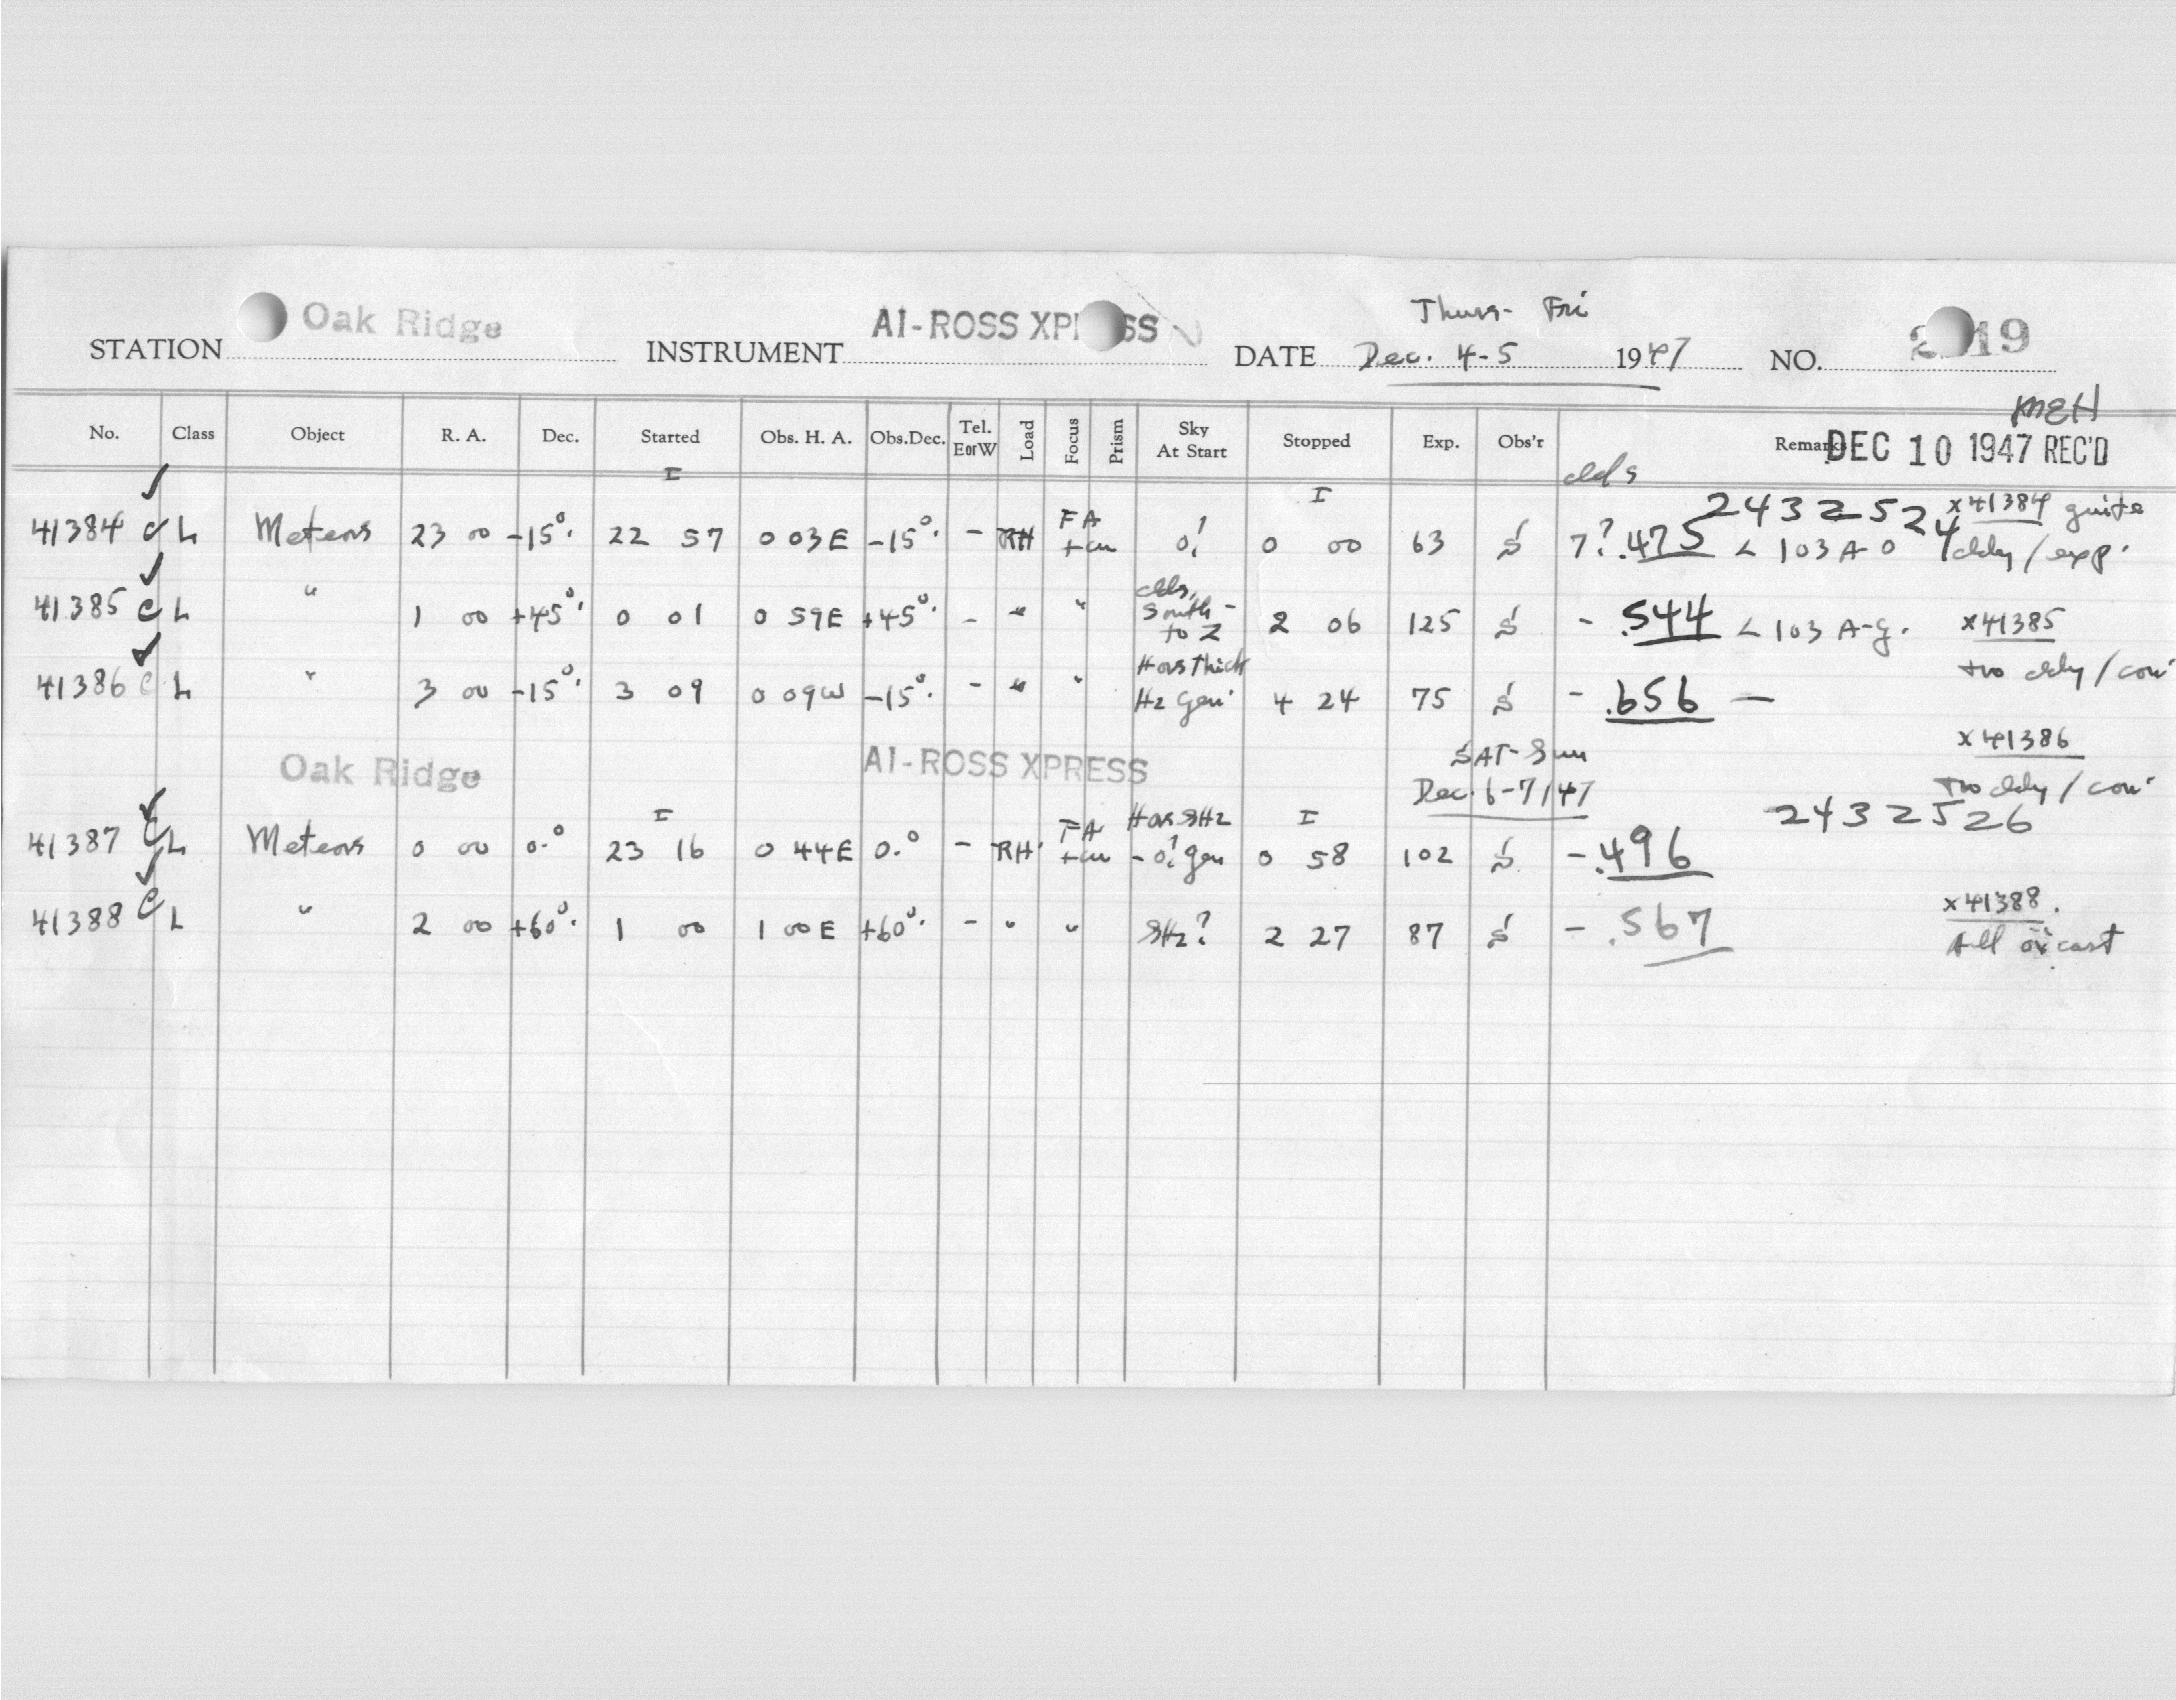 Thurs- Fri
STATION Oak Ridge INSTRUMENT AI-ROSS XPRESS DATE Dec. 4-5 1947 NO. 2 19
MEH
No. Class Object R. A. Dec. Started Obs. H. A. Obs.Dec. Tel. EorW Load Focus Prism Sky At Start Stopped Exp. Obs'r Remarks DEC 10 1947 REC'D
I I clds 2432524 x41384 quite
41384 C L Meteors 23 00 -15°. 22 57 0 03E -15°. - RH FA 0! 0 00 63 S 7? .475 < 103 A-0 cldy/exp.
41385 C L " 1 00 +45°. 0 01 0 59E +45°. - " " clds, South- to Z 2 06 125 S - .544 < 103 A-g. x41385
two cldy/con.
41386 C L " 3 00 -15°. 3 09 0 09W -15°. - " " Hors thick Hz gen. 4 24 75 S - .656 —
x41386
Oak Ridge AI-ROSS XPRESS SAT-Sun
Dec. 6-7/47 two cldy/con.
I I 2432526
41387 C L Meteors 0 00 0.° 23 16 0 44E 0.° - RH. FA Hor. SHz - 0? gen 0 58 102 S - .496
41388 C L " 2 00 +60°. 1 00 1 00E +60°. - " " SHz? 2 27 87 S - .567 x41388.
All o'cast